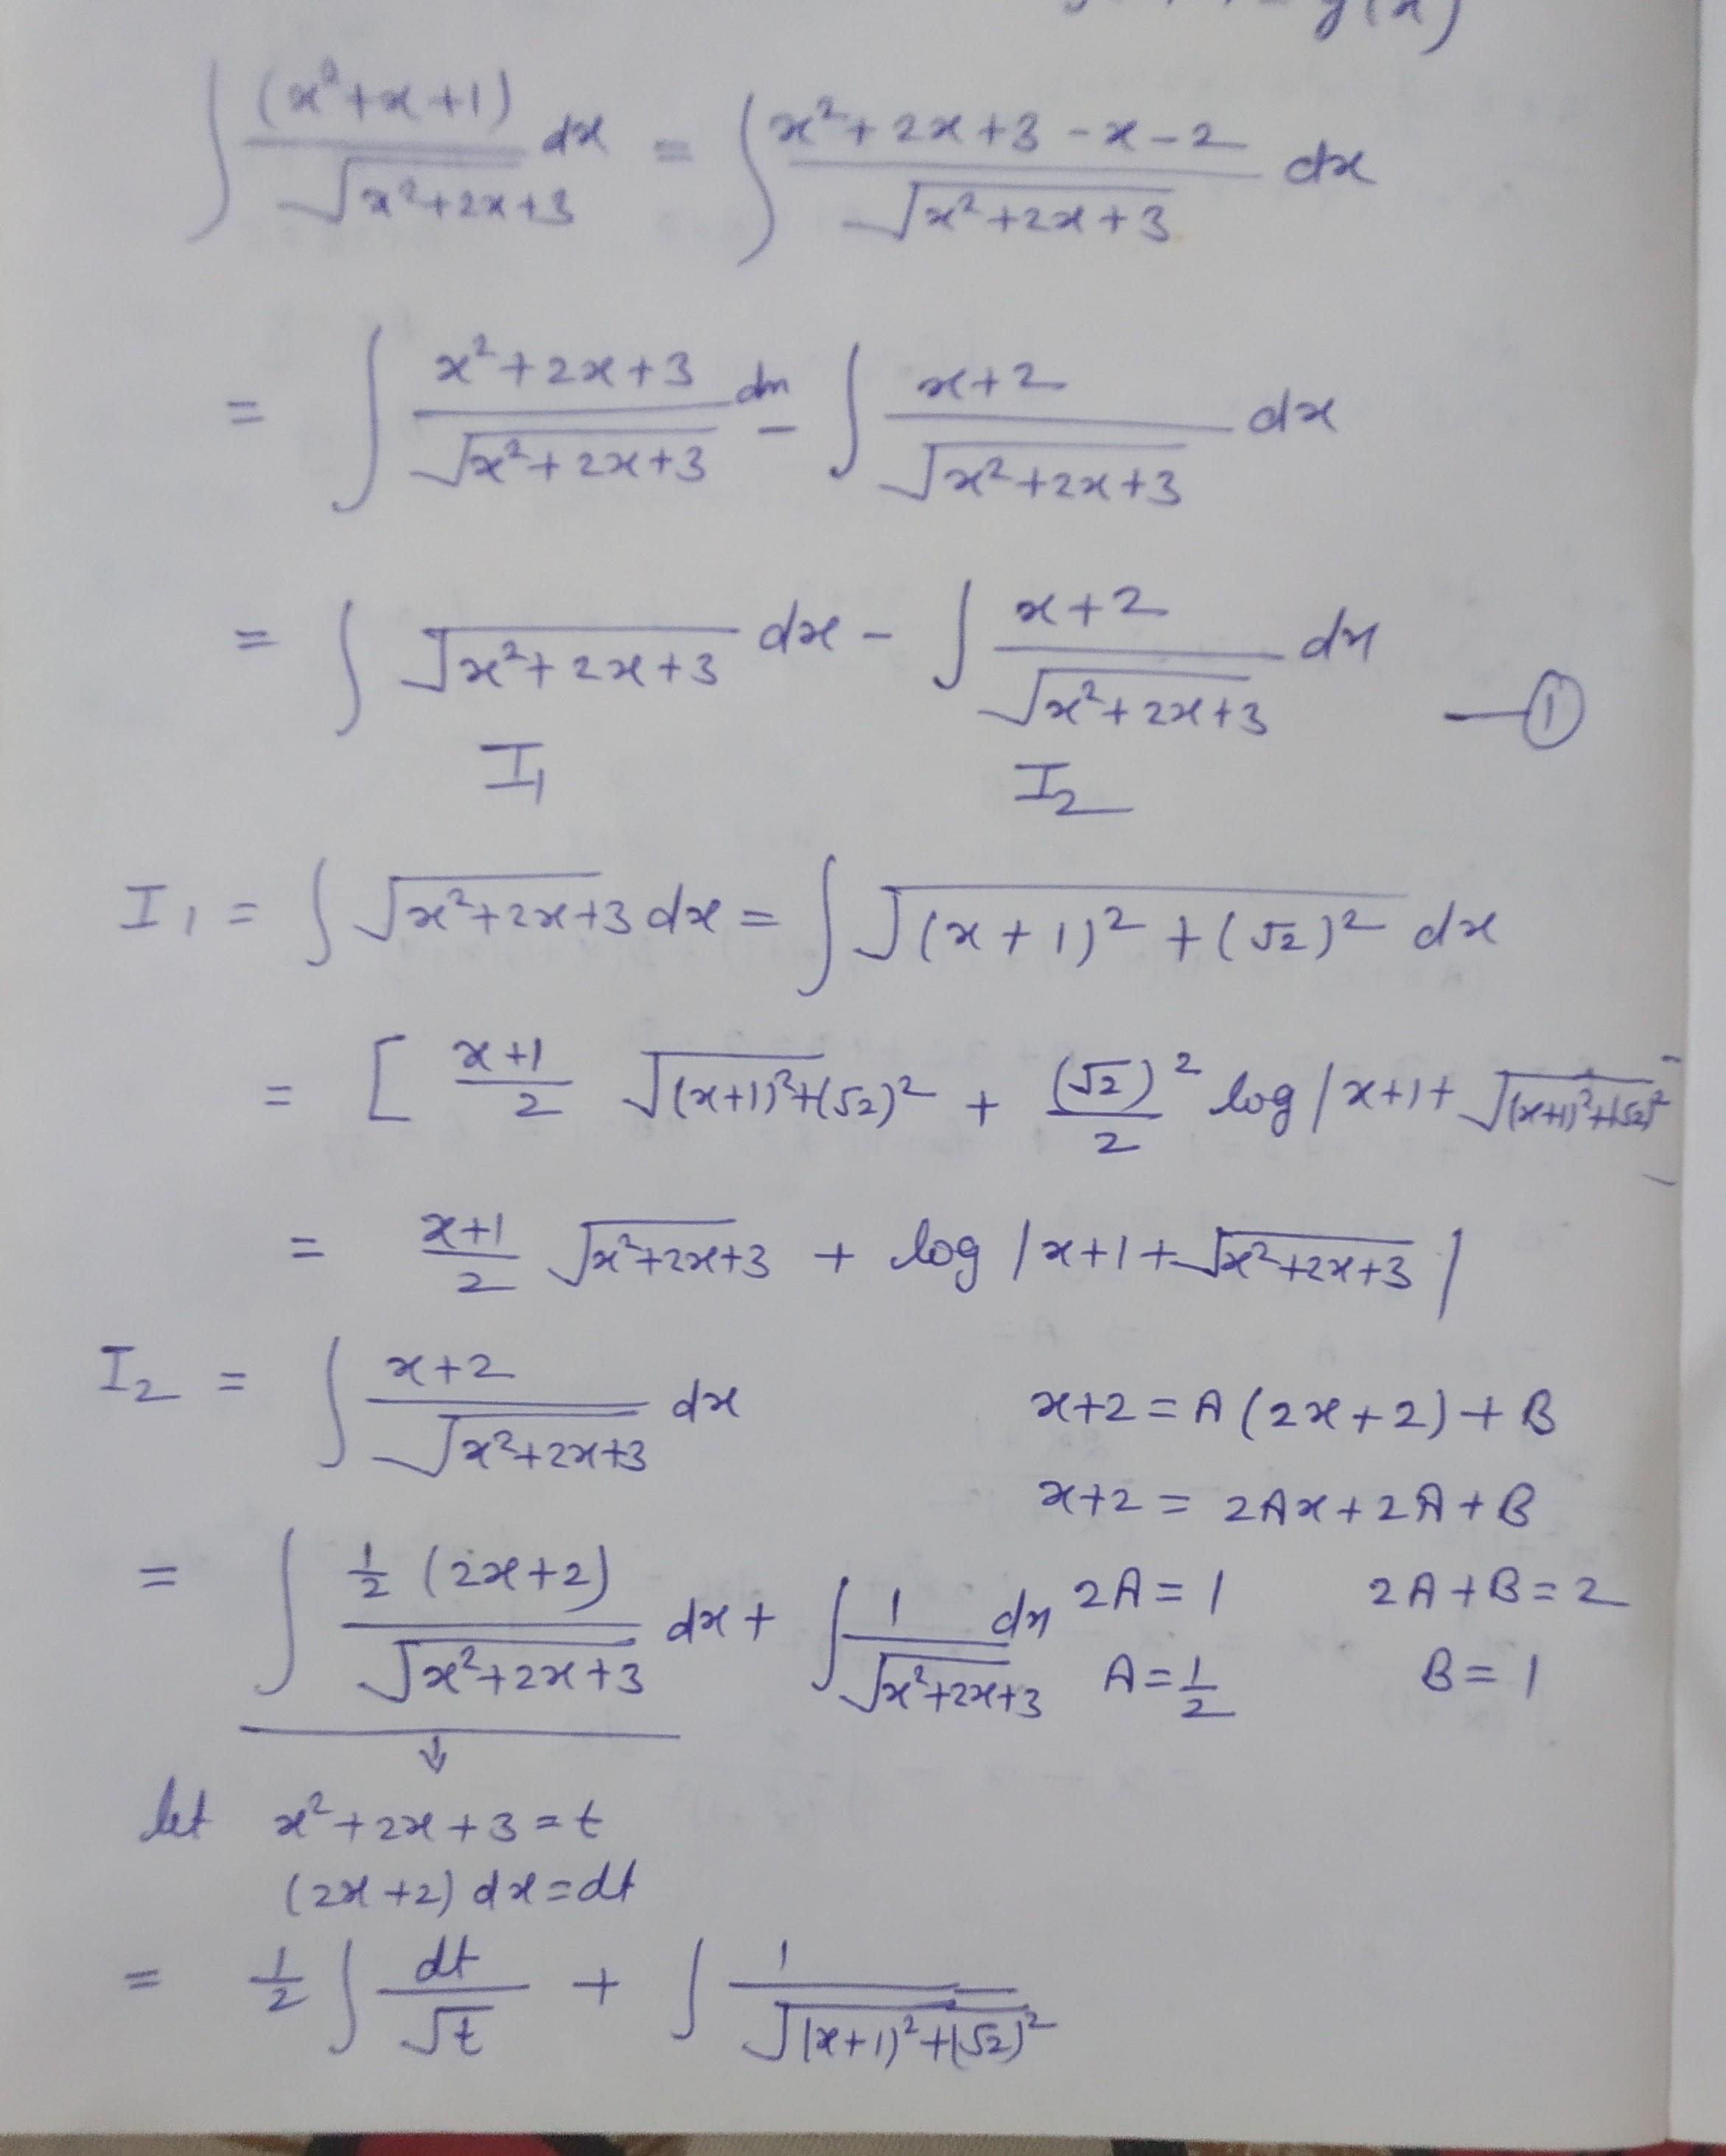 g(x)
∫ (x²+x+1)/√(x²+2x+3) dx = ∫ (x²+2x+3-x-2)/√(x²+2x+3) dx
= ∫ (x²+2x+3)/√(x²+2x+3) dx - ∫ (x+2)/√(x²+2x+3) dx
= ∫ √(x²+2x+3) dx - ∫ (x+2)/√(x²+2x+3) dx —①
I₁ I₂
I₁ = ∫ √(x²+2x+3) dx = ∫ √((x+1)²+(√2)²) dx
= [ (x+1)/2 √((x+1)²+(√2)²) + (√2)²/2 log |x+1+√((x+1)²+(√2)²)
= (x+1)/2 √(x²+2x+3) + log |x+1+√(x²+2x+3)|
I₂ = ∫ (x+2)/√(x²+2x+3) dx x+2 = A(2x+2)+B
x+2 = 2Ax+2A+B
= ∫ ½(2x+2)/√(x²+2x+3) dx + ∫ 1/√(x²+2x+3) dx 2A=1 2A+B=2
A=½ B=1
↓
let x²+2x+3=t
(2x+2)dx=dt
= ½ ∫ dt/√t + ∫ 1/√((x+1)²+(√2)²)